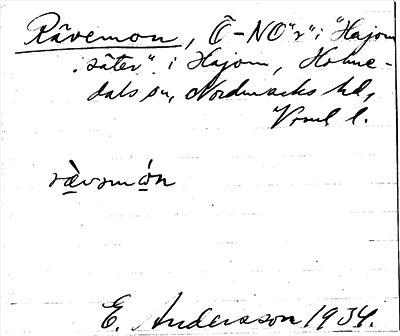 Rävemon, Ö-NO "r" i "Hajom
säter" i Hajom, Holme-
dals sn, Nordmarks hd,
Vrml l.
rævəmón
E. Andersson 1934.